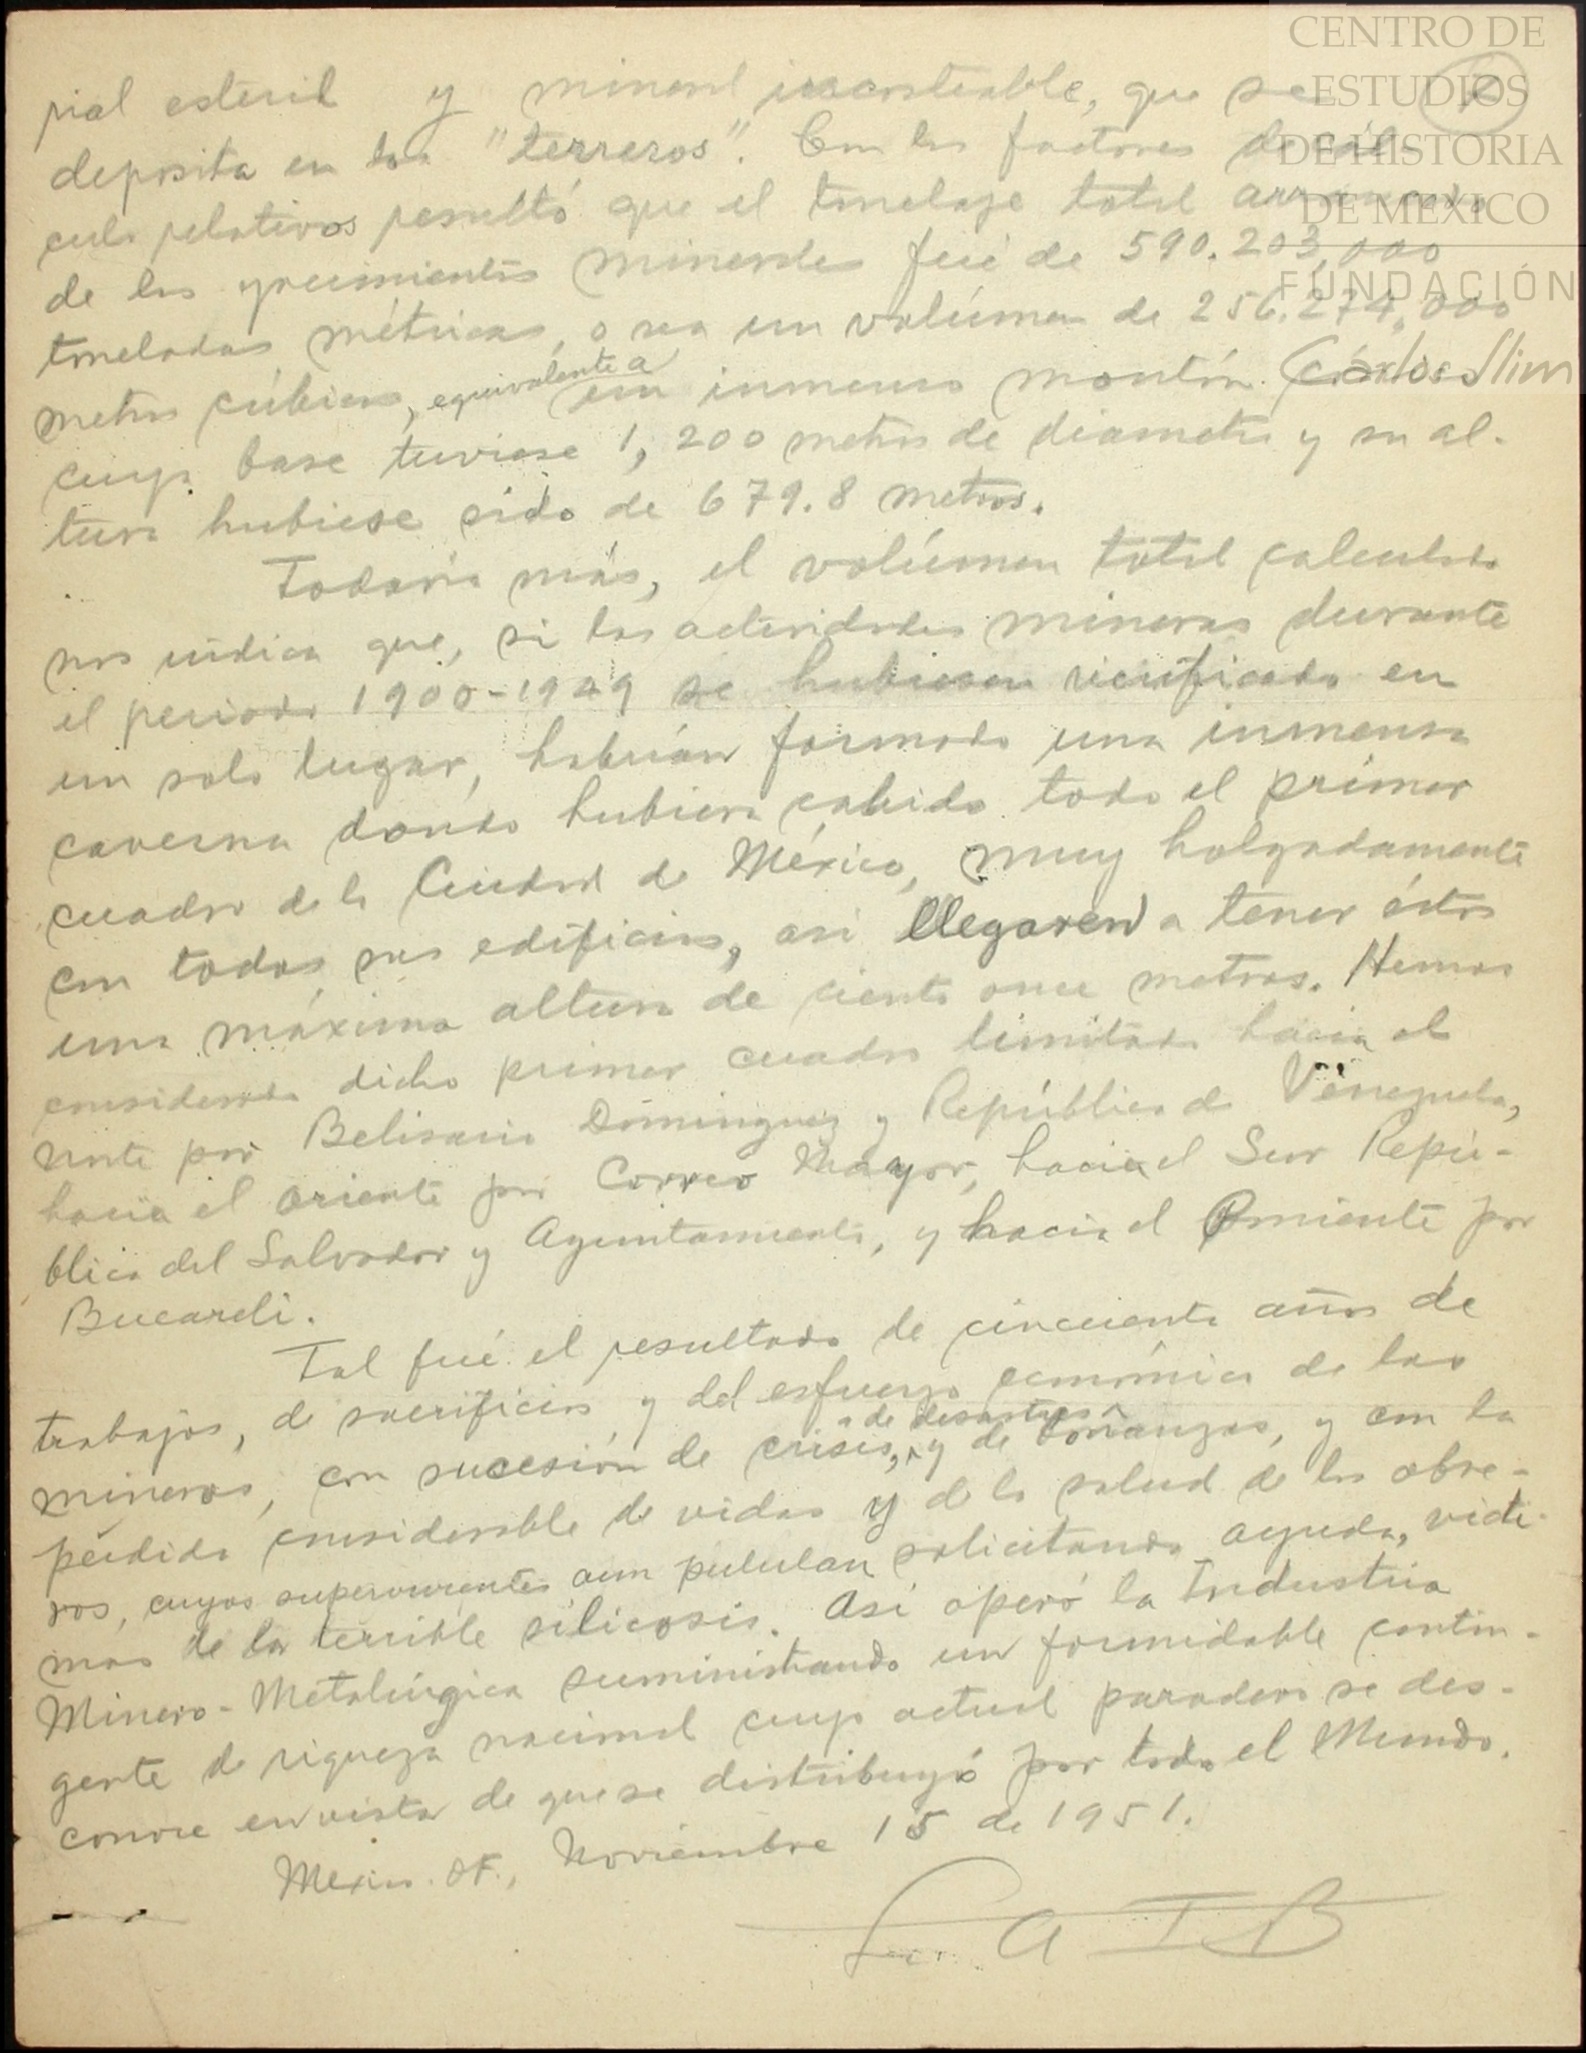 CENTRO DE
ESTUDIOS
DE HISTORIA
DE MEXICO
FUNDACIÓN
Carlos Slim
rial esteril y mineral incosteable, que se
deposita en los "terreros". Con los factores de cál-
culo relativos resultó que el tonelaje total arrancado
de los yacimientos minerales fué de 590.203,000
toneladas métricas, o sea un volúmen de 256.274,000
metros cúbicos, equivalente a un inmenso montón
cuya base tuviese 1,200 metros de diametro y su al-
tura hubiese sido de 679.8 metros.
Todavía más, el volúmen total calculado
nos indica que, si las actividades mineras durante
el periodo 1900-1949 se hubiesen verificado en
un solo lugar, habrían formado una inmensa
caverna donde hubiera cabido todo el primer
cuadro de la Ciudad de México, muy holgadamente
con todos sus edificios, asi llegaren a tener éstos
una máxima altura de ciento once metros. Hemos
considerado dicho primer cuadro limitado hacia el
Norte por Belisario Dominguez y República de Venezuela,
hacia el oriente por Correo Mayor, hacia el Sur Repú-
blica del Salvador y Ayuntamiento, y hacia el Poniente por
Bucareli.
Tal fué el resultado de cincuenta años de
trabajos, de sacrificios y del esfuerzo económico de los
mineros, con sucesión de crisis, de desastres y de bonanzas, y con la
pérdida considerable de vidas y de la salud de los obre-
ros, cuyos supervivientes aun pululan solicitando ayuda, victi-
mas de la terrible silicosis. Asi operó la Industria
Minero-Metalúrgica suministrando un formidable contin-
gente de riqueza nacional cuyo actual paradero se des-
conoce en vista de que se distribuyó por todo el Mundo.
Mexico. DF., Noviembre 15 de 1951.